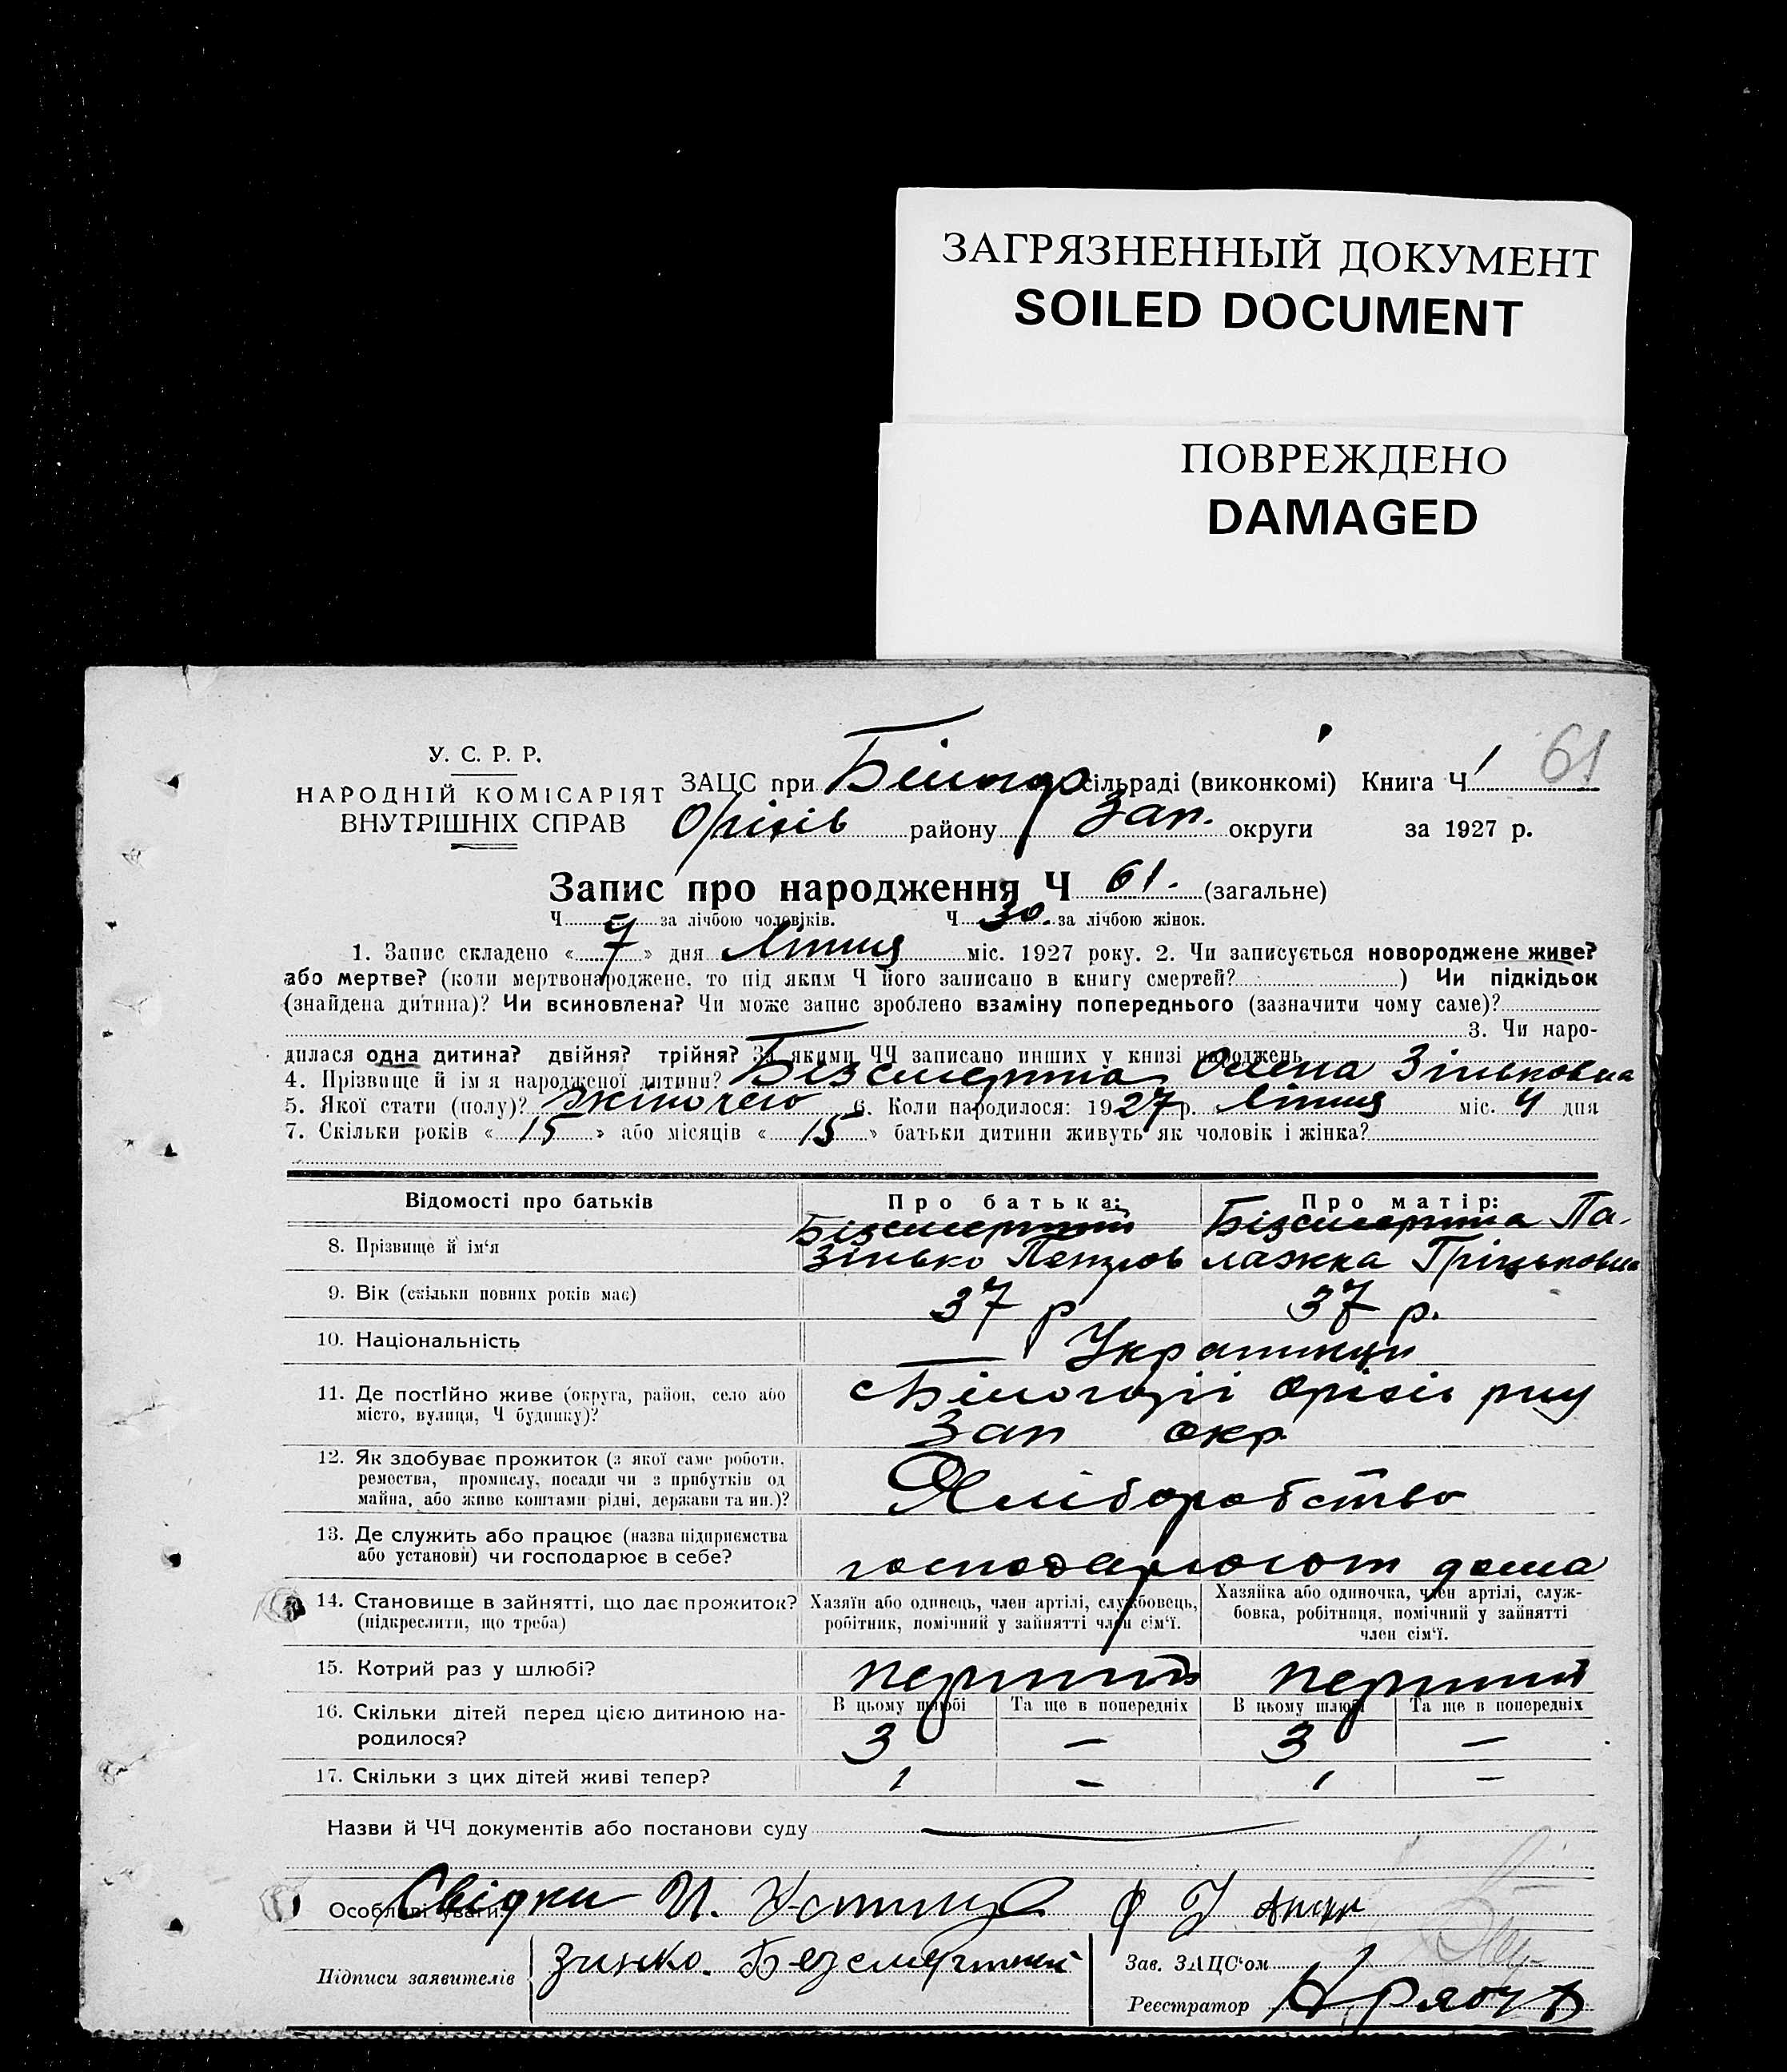 ЗАГРЯЗНЕННЫЙ ДОКУМЕНТ
SOILED DOCUMENT
ПОВРЕЖДЕНО
DAMAGED
61
У. С. Р. Р.
НАРОДНІЙ КОМІСАРІЯТ
ВНУТРІШНІХ СПРАВ
ЗАЦС при Білогор сільраді (виконкомі) Книга Ч 1
Оріхів району Зап. округи за 1927 р.
Запис про народження Ч 61. (загальне)
Ч за лічбою чоловіків. Ч 30. за лічбою жінок.
1. Запис складено « 7 » дня Липня міс. 1927 року. 2. Чи записується новороджене живе?
або мертве? (коли мертвонароджене, то під яким Ч його записано в книгу смертей? ) Чи підкідьок
(знайдена дитина)? Чи всиновлена? Чи може запис зроблено взаміну попереднього (зазначити чому саме)?
3. Чи наро-
дилася одна дитина? двійня? трійня? За якими ЧЧ записано инших у книзі народжень
4. Прізвище й ім'я народженої дитини? Безсмертна Олена Зіньковна
5. Якої стати (полу)? жіночею 6. Коли народилося: 1927 р. Липня міс. 4 дня
7. Скільки років « 15 » або місяців « 15 » батьки дитини живуть як чоловік і жінка?
Відомості про батьків
Про батька:
Про матір:
8. Прізвище й ім'я
Бізсмертний
Зінько Петров
Бізсмертна Па-
лажка Гріцьковна
9. Вік (скільки повних років має)
37 р
37 р.
10. Національність
Українци
11. Де постійно живе (округа, район, село або
місто, вулиця, Ч будинку)?
с Білогорії Оріхів рну
Зап окр.
12. Як здобуває прожиток (з якої саме роботи,
ремества, промислу, посади чи з прибутків од
майна, або живе коштами рідні, держави та ин.)?
Хліборобство
13. Де служить або працює (назва підприємства
або установи) чи господарює в себе?
господарюют дома
14. Становище в зайнятті, що дає прожиток?
(підкреслити, що треба)
Хазяїн або одинець, член артілі, службовець,
робітник, помічний у зайнятті член сім'ї.
Хазяйка або одиночка, член артілі, служ-
бовка, робітниця, помічний у зайнятті
член сім'ї.
15. Котрий раз у шлюбі?
перший
перший
16. Скільки дітей перед цією дитиною на-
родилося?
В цьому шлюбі
Та ще в попередніх
В цьому шлюбі
Та ще в попередніх
3
—
3
—
17. Скільки з цих дітей живі тепер?
1
—
1
—
Назви й ЧЧ документів або постанови суду
Особливі уваги: Свідки И.
Підписи заявителів
Зинко. Безсмертний
Зав. ЗАЦС'ом
Реєстратор